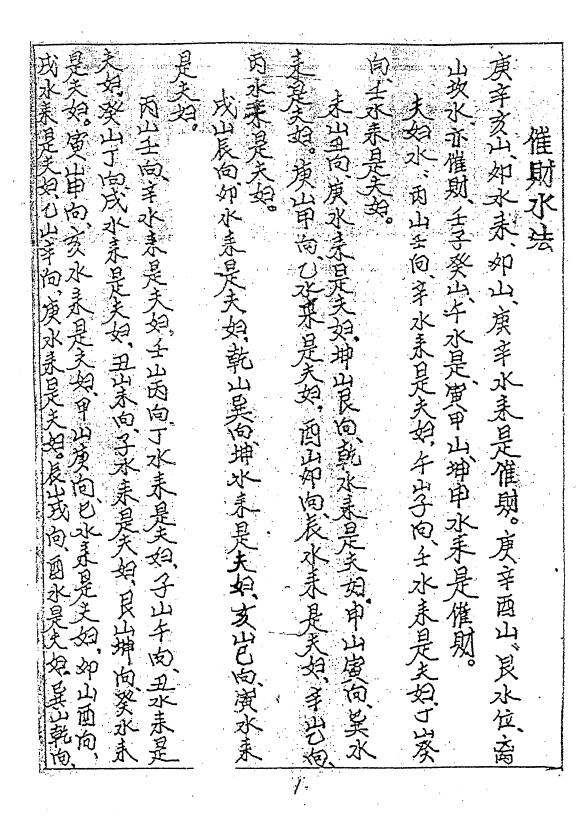 催財水法
庚辛亥山、卯水来、卯山、庚辛水来是催財。庚辛酉山、艮水位、离
山坎水亦催財、壬子癸山、午水是、寅甲山、坤申水来是催財。
夫妇水、丙山壬向、辛水来是夫妇,午山子向、壬水来是夫妇、丁山癸
向、壬水来是夫妇。
未山丑向、庚水来是夫妇、坤山艮向、乾水来是夫妇。申山寅向、巽水
来是夫妇。庚山甲向、乙水来是夫妇,酉山卯向、辰水来是夫妇、辛山乙向、
丙水来是夫妇。
戌山辰向、卯水来是夫妇、乾山巽向、坤水来是夫妇、亥山巳向、寅水来
是夫妇。
丙山壬向、辛水来是夫妇。壬山丙向、丁水来是夫妇、子山午向、丑水来是
夫妇、癸山丁向、戌水来是夫妇、丑山未向、子水来是夫妇、艮山坤向、癸水来
是夫妇。寅山申向、亥水来是夫妇、甲山庚向、巳水来是夫妇,卯山酉向、
戌水来是夫妇、乙山辛向、庚水来是夫妇。辰山戌向、酉水是夫妇、巽山乾向、
1